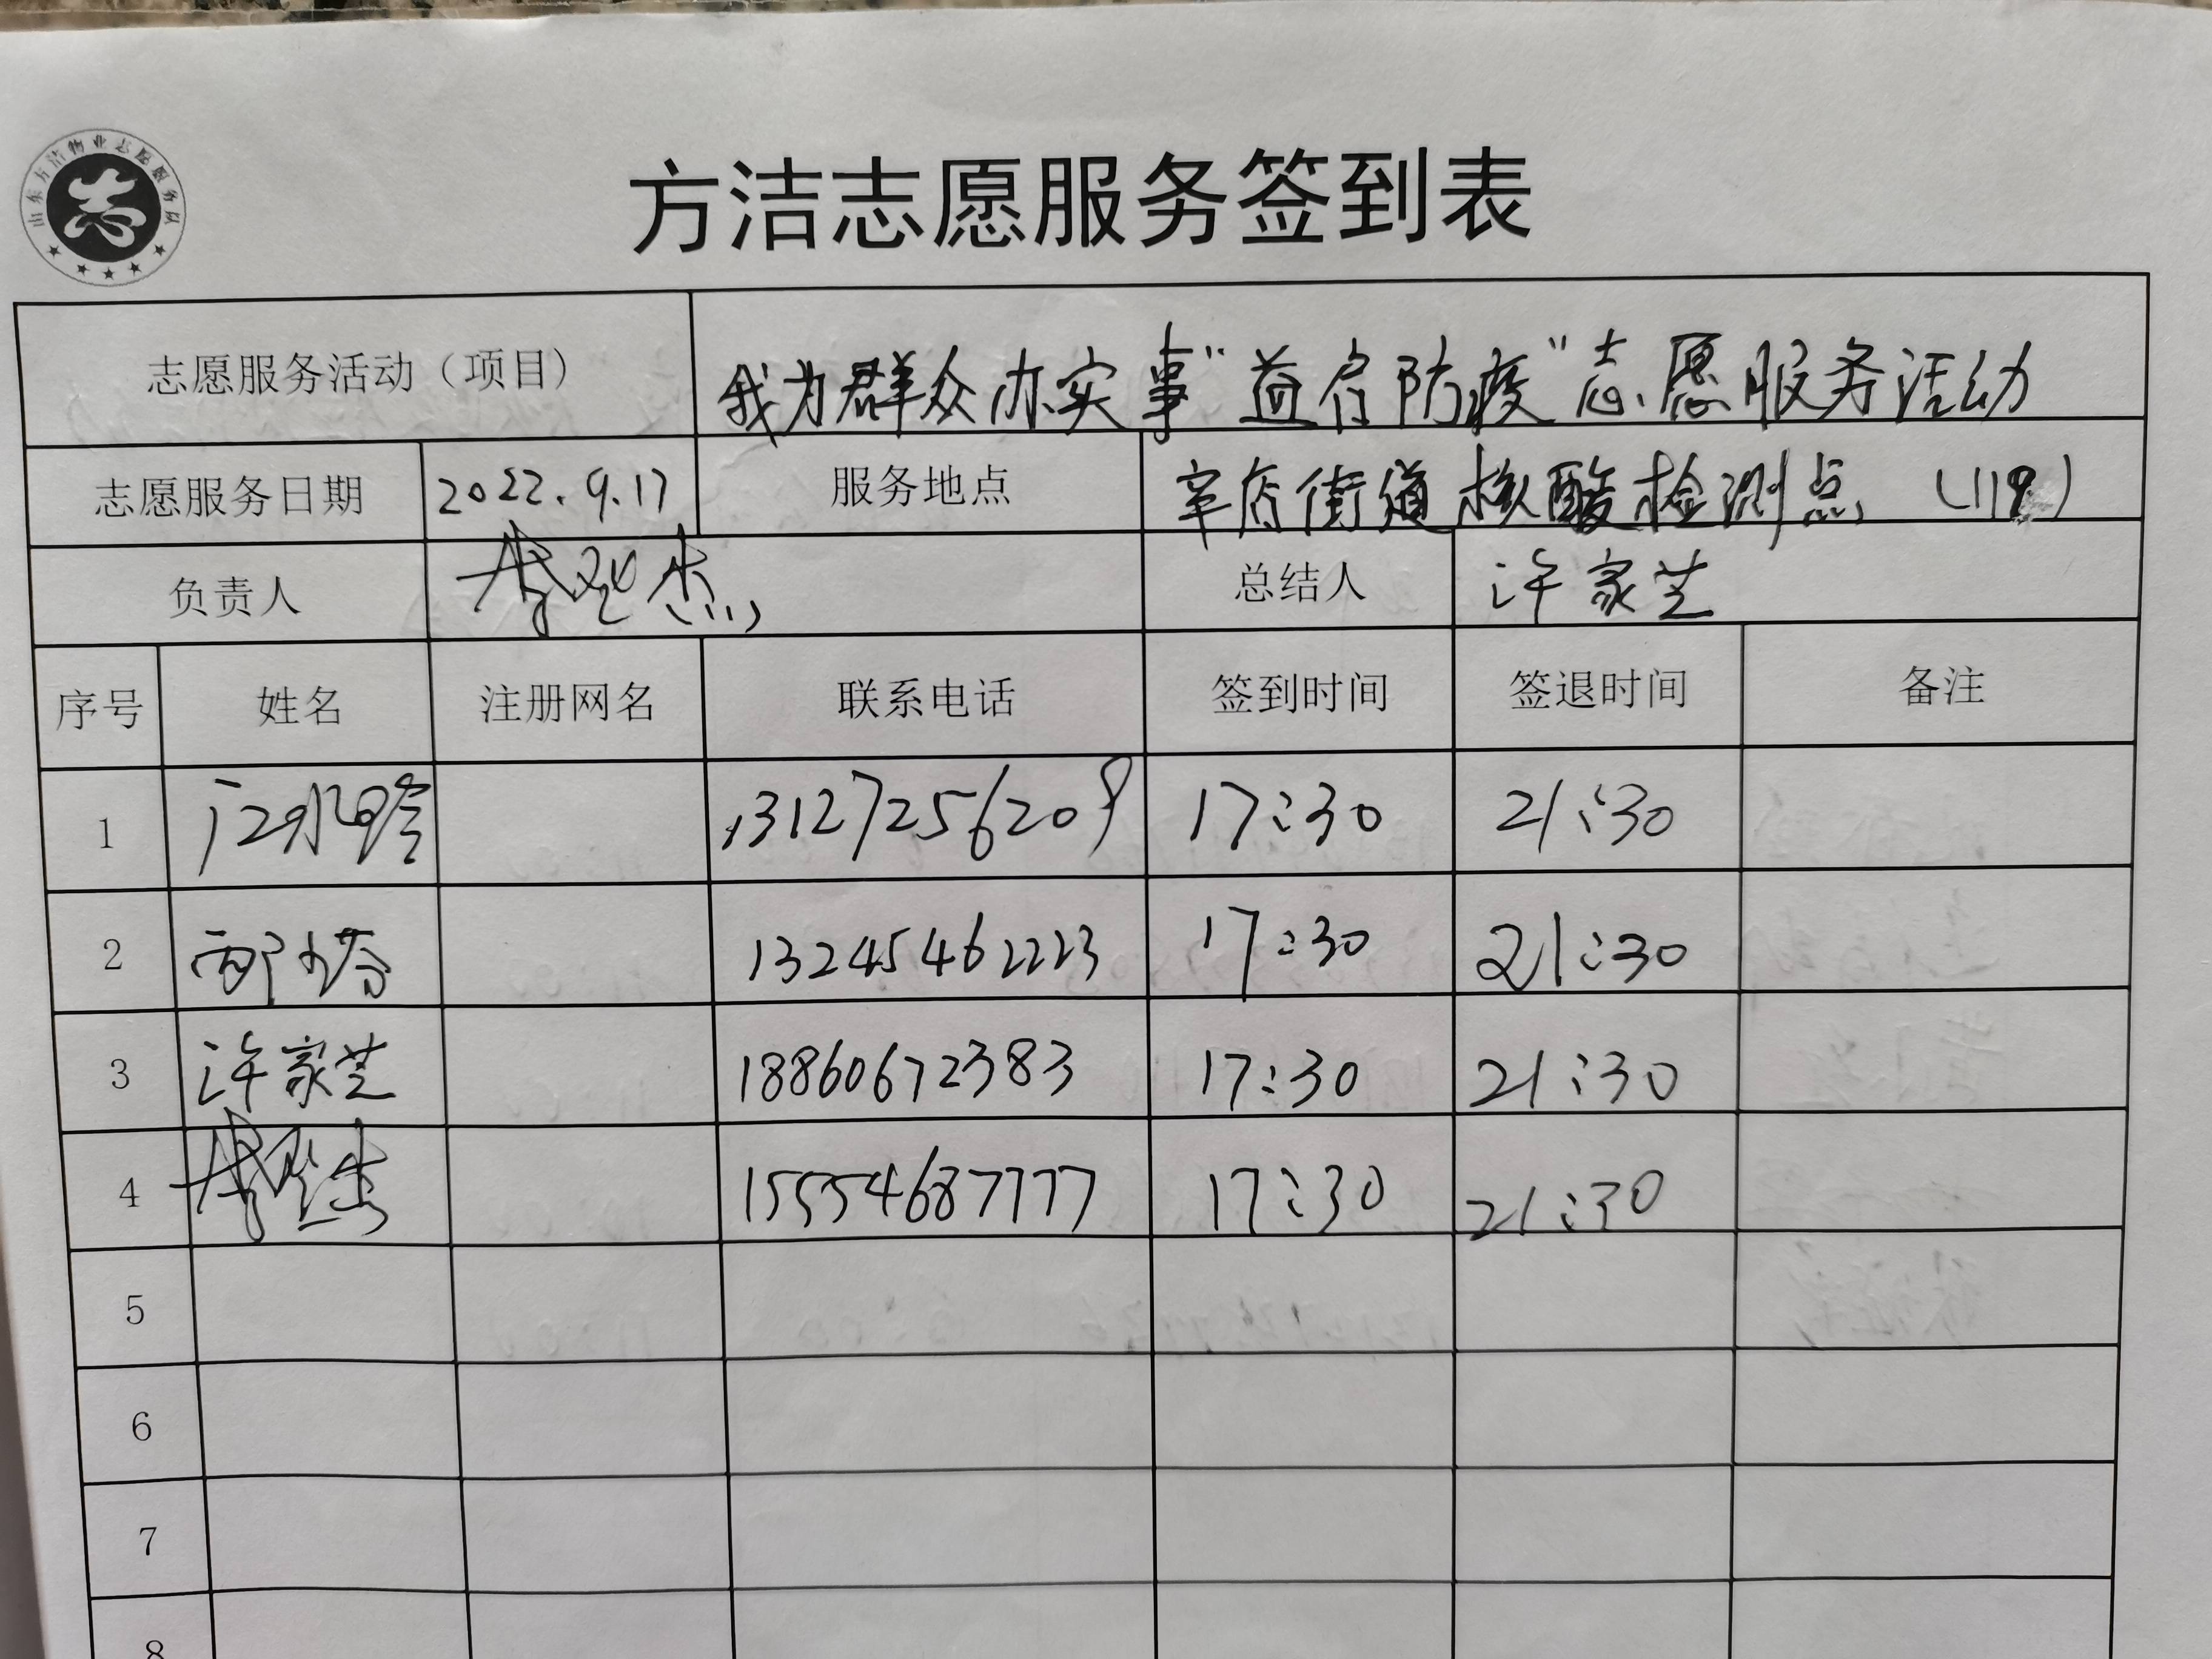 山东方洁物业志愿服务队
方洁志愿服务签到表
志愿服务活动（项目） 我为群众办实事"益启防疫"志愿服务活动
志愿服务日期 2022.9.17 服务地点 辛店街道核酸检测点
负责人 总结人 许家芝
序号 姓名 注册网名 联系电话 签到时间 签退时间 备注
1 13127256209 17:30 21:30
2 13245462223 17:30 21:30
3 许家芝 18860672383 17:30 21:30
4 15554687777 17:30 21:30
5
6
7
8